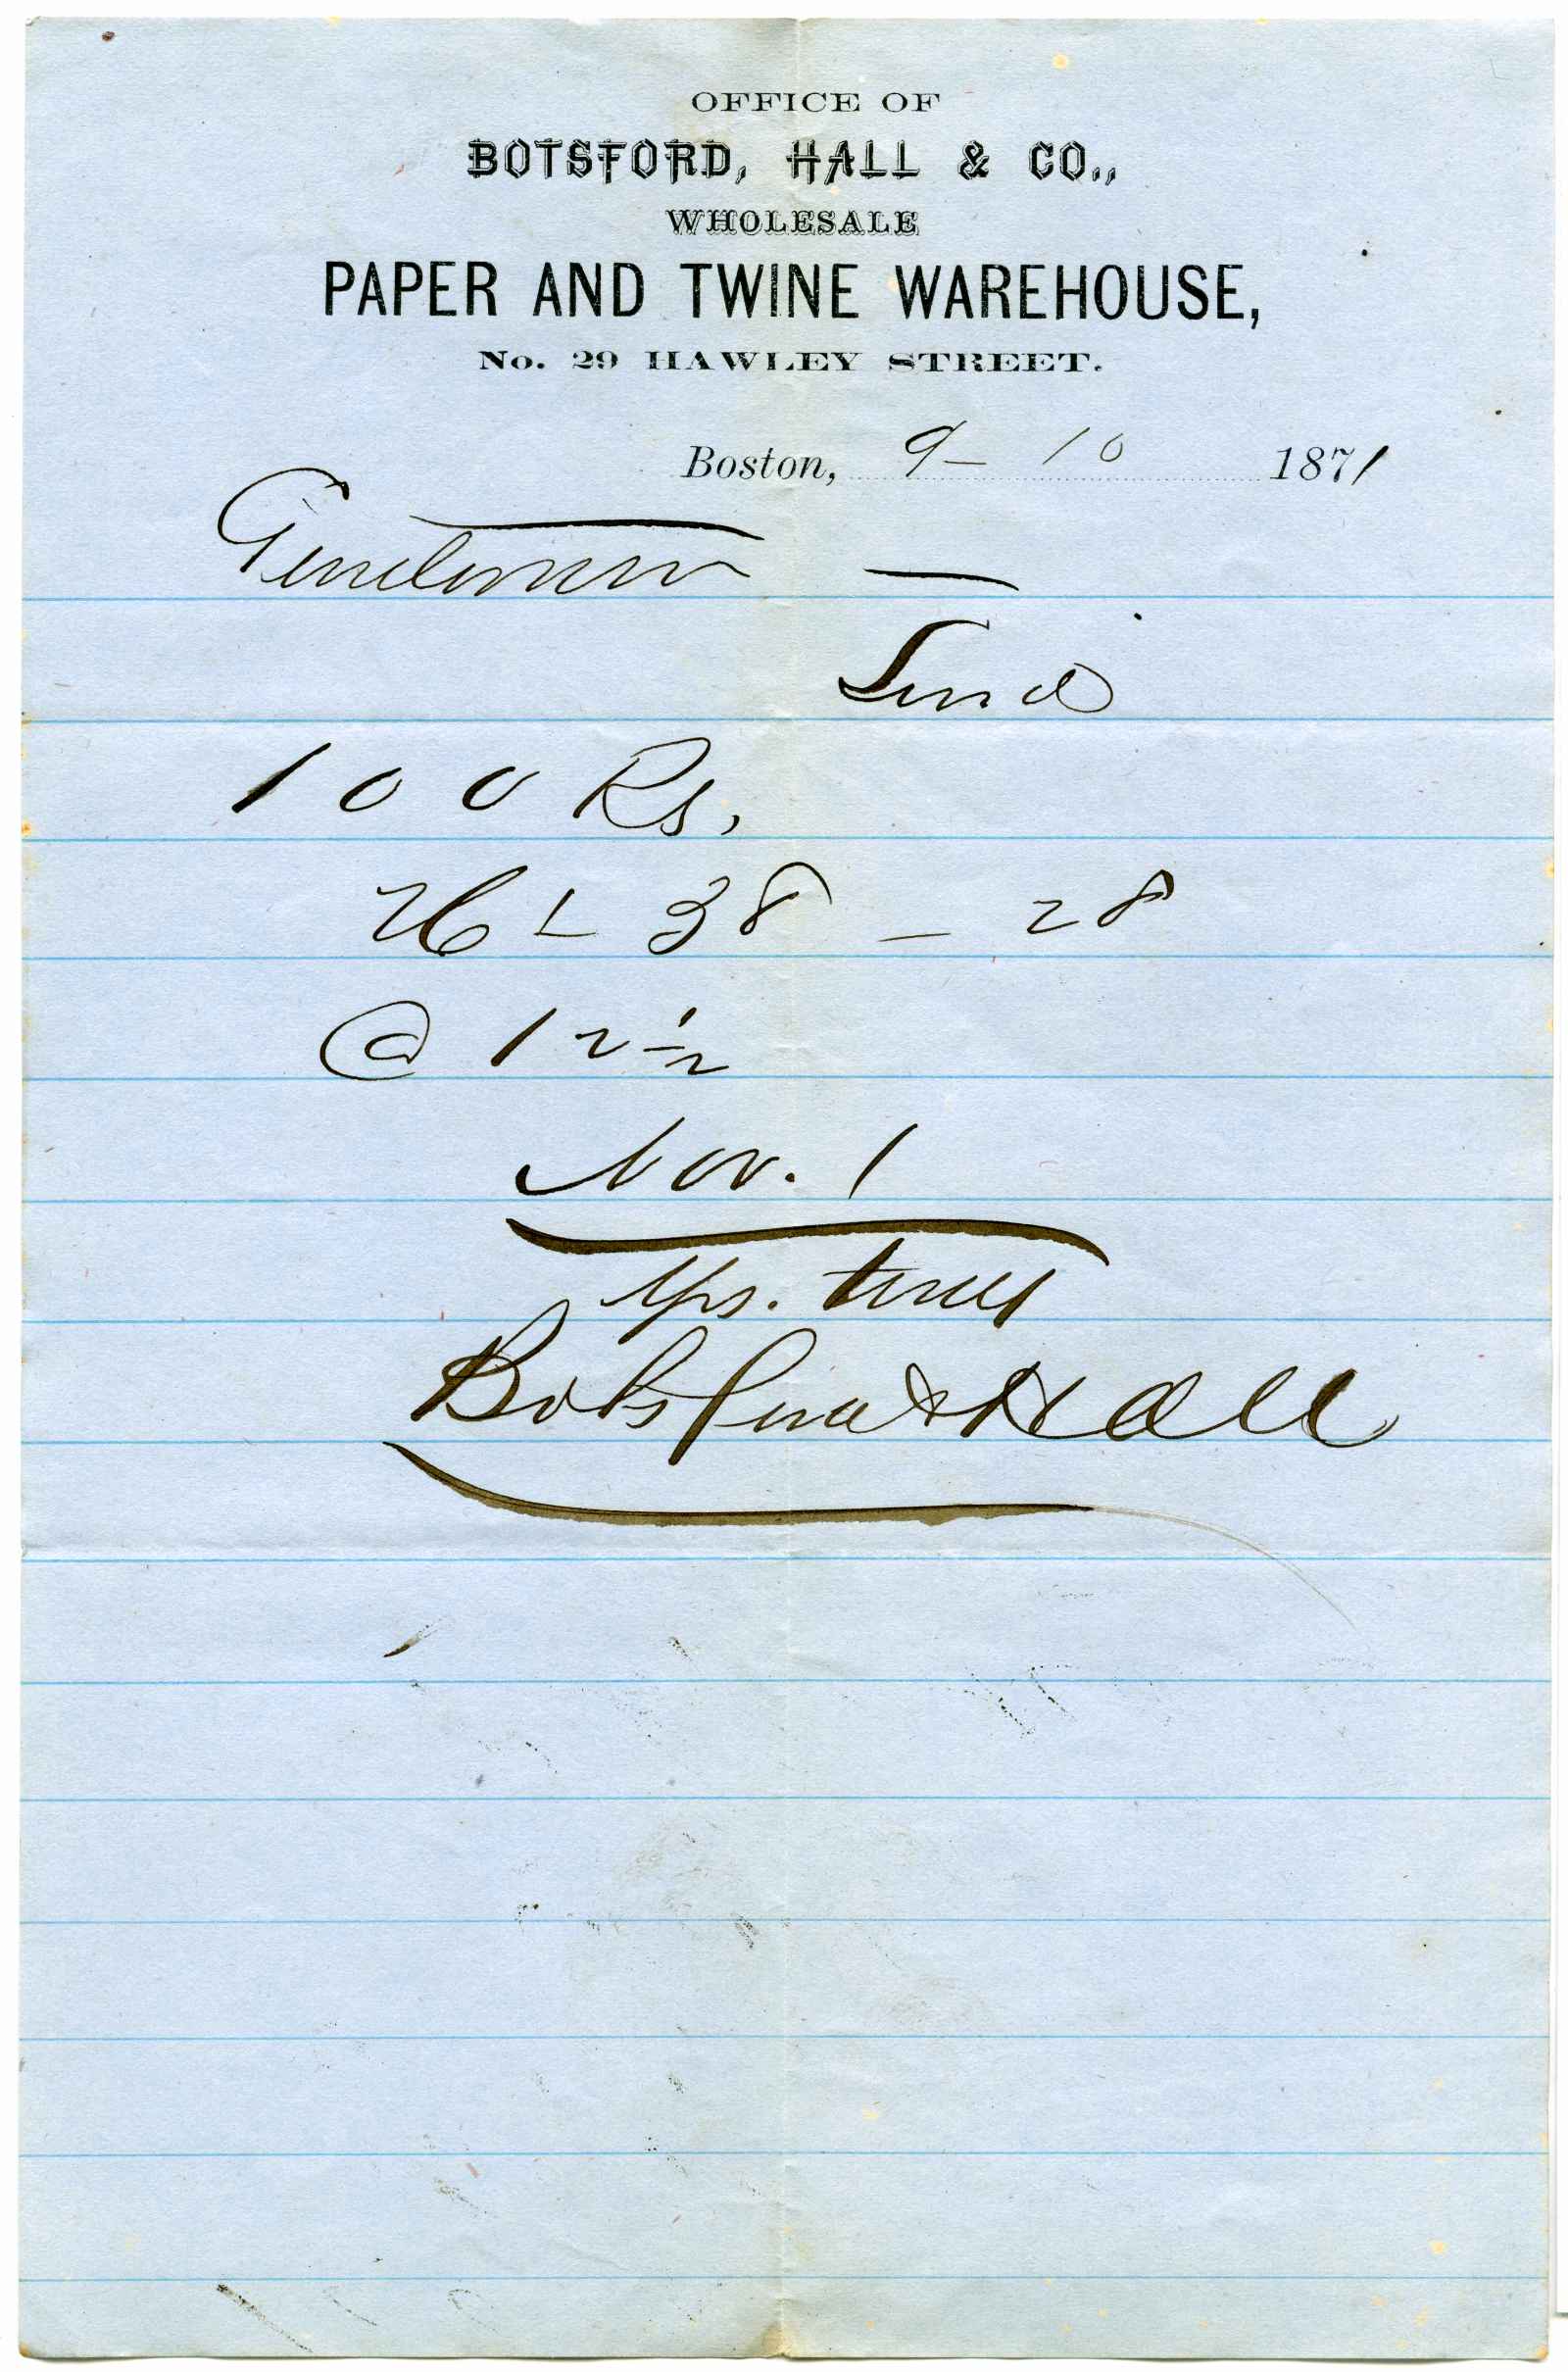 OFFICE OF
BOTSFORD, HALL & CO.,
WHOLESALE
PAPER AND TWINE WAREHOUSE,
No. 29 HAWLEY STREET.
Boston, 9 – 10 1871
Gentlemen —
Send
100 Rs,
26 38 – 28
@ 12½
Nov. 1
Yrs. truly
Botsford & Hall